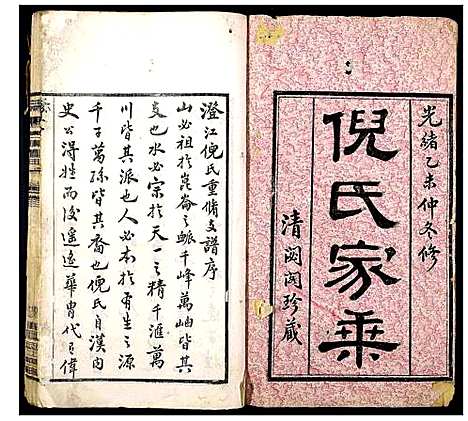 光緒乙未仲冬修
倪氏家乘
清閟閣珍藏
澄江倪氏重脩支譜序
山必祖於崑崙之脈千峰萬岫皆其
支也水必宗於天一之精千滙萬
川皆其派也人必本於有生之源
千子萬孫皆其裔也倪氏自漢内
史公得姓而後遥遥華胄代有偉